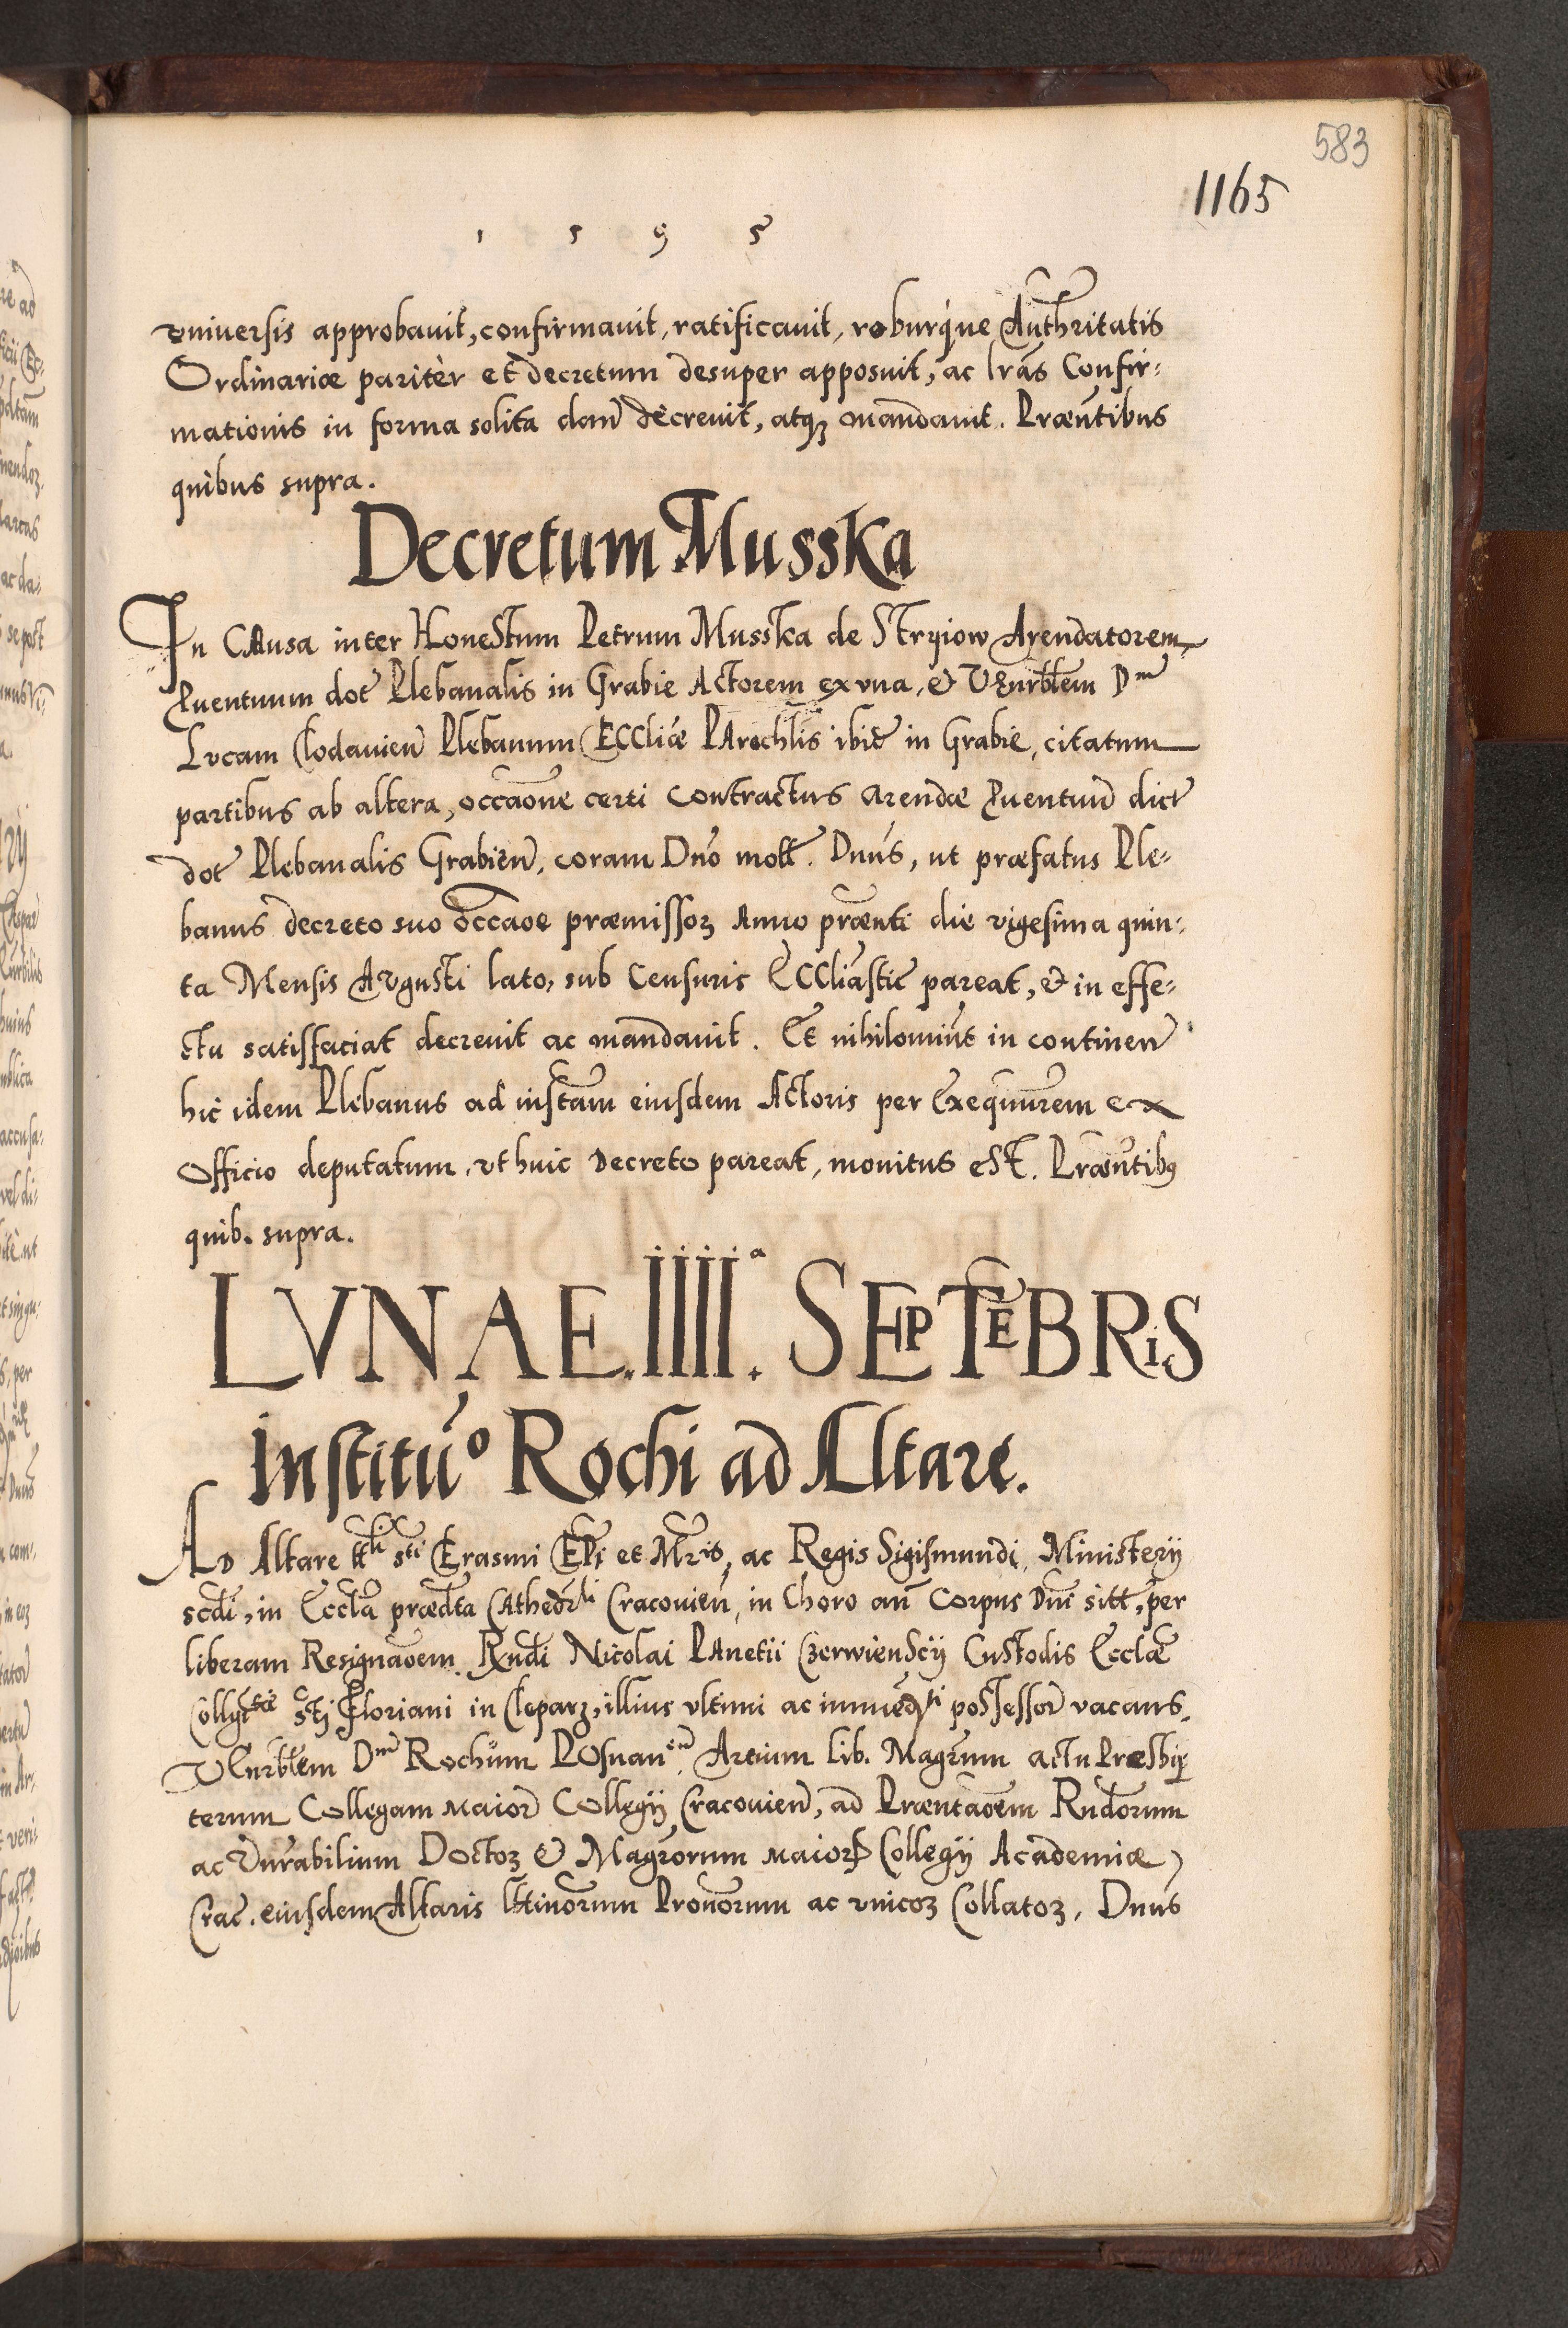 583
1165
1 5 9 5
vniversis approbavit, confirmavit, ratificavit, roburq̀ue Authritatis
Ordinariæ paritèr et decretum desuper apposuit, ac lrãs Confir:
mationis in forma solita dari decrevit, atqꝫ mandavit. Præñtibus
quibus supra.
Decretum Musska
In CAusa inter HoneStum Petrum Mussка de Stryiow Arendatorem
Pventuum dot̃ Plebanalis in Grabie Actorem ex vna, & VEnrblem Dnũ
Lvcam Clodavien̄ Plebanum ECCliæ PArochlis ibid̃ in Grabie, citatum
partibus ab altera, occãone certi contractus arendæ Pventuũ dict̃
dot̃ Plebanalis Grabień, coram Dnõ mot̃. Dnũs, ut præfatus Ple-
banus decreto suo occãoe præmissoꝝ Anno præñti die vigesima quin:
ta Mensis Avgusti lato, sub Censuris ECCliastic̃ pareat, & in effe-
ctu satisfaciat decrevit ac mandavit. Et nihilominũs in continen̄
hic idem Plebanus ad instãm eiusdem Actoris per Exequũrem ex
officio deputatum, vt huic decreto pareat, monitus eSt. Præñtibꝰ
quib. supra.
LVNAE. IIIIᵃ. SEPTẼBRiS
Institũo Rochi ad Altare.
AD Altare ttli sti Erasmi EPi et Mris, ac Regis Sigismundi, Ministerij
scdi, in Eccla prædta CAthedrli Cracovien̄, in Choro añ Corpus Dñi sitt̃, per
liberam Resignãoem Rndi Nicolai PAnetii CzerwienScij CuStodis Ecclæ
Collgtæ Sti Floriani in Cleparz, illius vltimi ac immedti posSessor̃ vacans,
VEnrblem Dnũ Rochum POsnanen̄, Artium lib. Magrum actu PræSby
terum Collegam maior̃ Collegij Cracovien̄, ad Præntãoem Rndorum
ac Vnrabilium Doctoꝝ & Magrorum maiorꝝ Collegij Academiæ
Crac̃. eiusdem Altaris lttimorum Pronorum ac vnicoꝝ Collatoꝝ, Dnũs